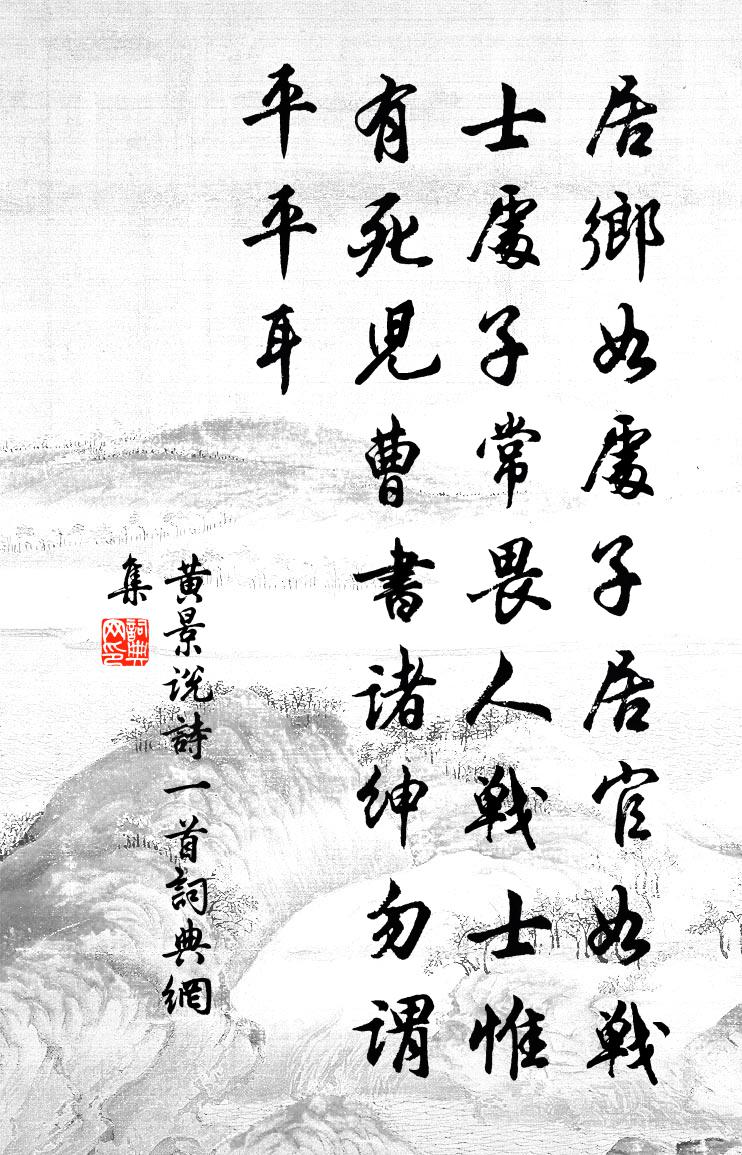 居鄉如處子居官如戰
士處子常畏人戰士惟
有死兒曹書諸紳勿謂
平平耳
黃景说詩一首詞典網
集
詞典网印